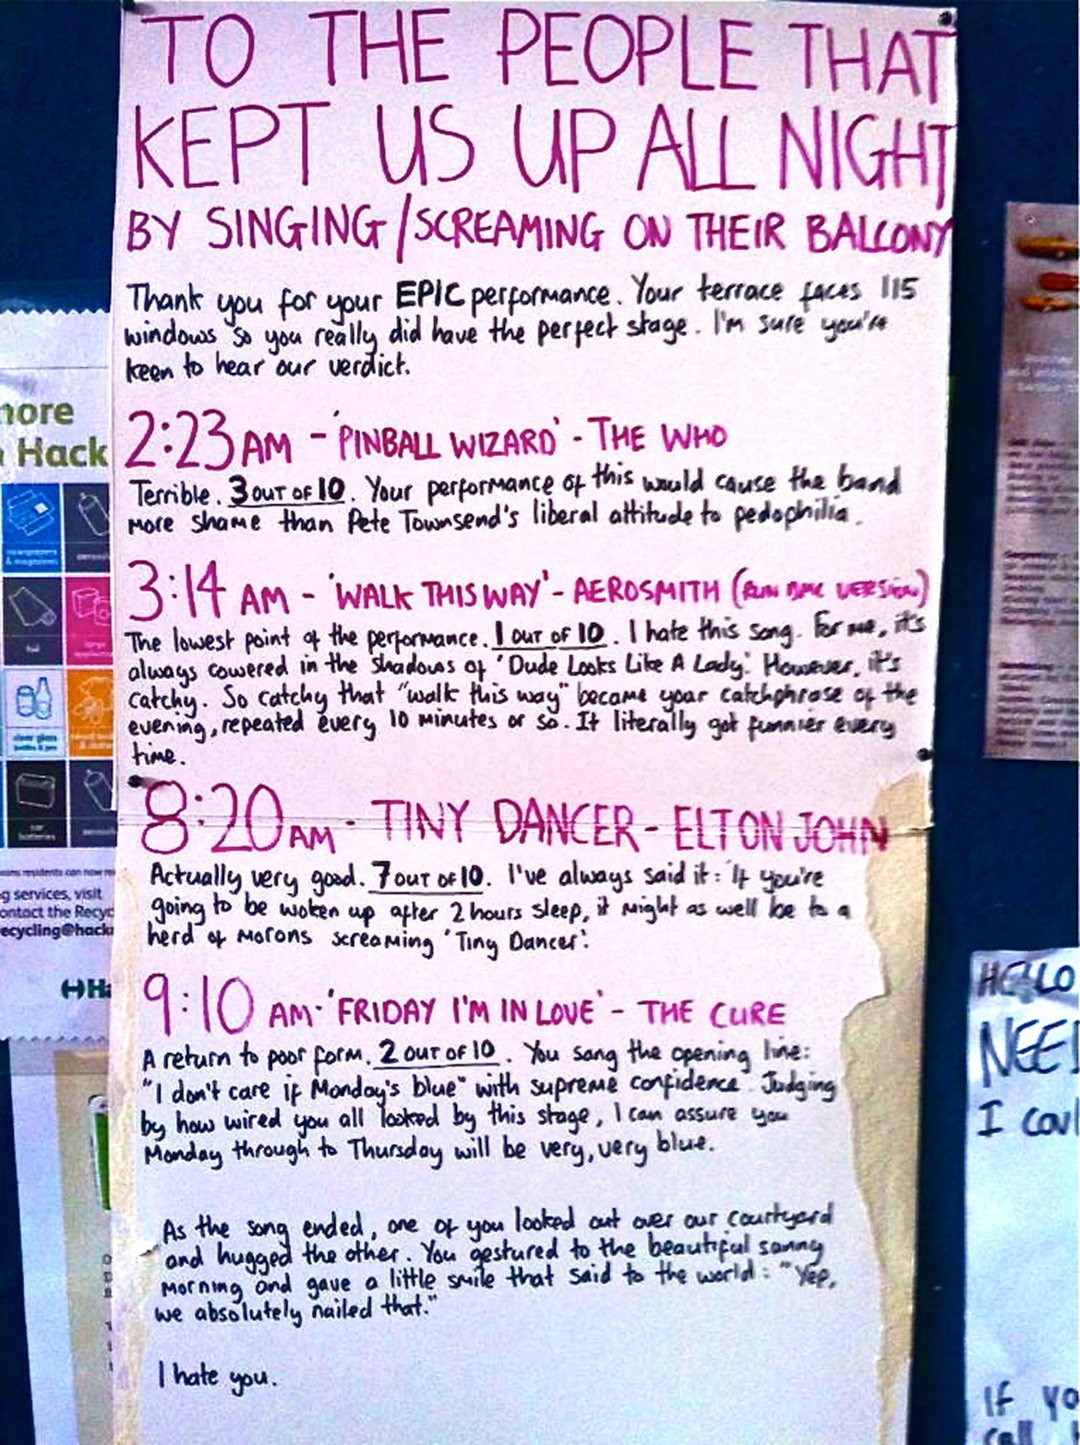 TO THE PEOPLE THAT
KEPT US UP ALL NIGHT
BY SINGING/SCREAMING ON THEIR BALCONY
Thank you for your EPIC performance. Your terrace faces 115
windows so you really did have the perfect stage. I'm sure you're
keen to hear our verdict.
2:23 AM - 'PINBALL WIZARD' - THE WHO
Terrible. 3 OUT OF 10. Your performance of this would cause the band
more shame than Pete Townsend's liberal attitude to pedophilia.
3:14 AM - 'WALK THIS WAY' - AEROSMITH (RUN DMC VERSION)
The lowest point of the performance. 1 OUT OF 10. I hate this song. For me, it's
always cowered in the shadows of 'Dude Looks Like A Lady'. However, it's
catchy. So catchy that "walk this way" became your catchphrase of the
evening, repeated every 10 minutes or so. It literally got funnier every
time.
8:20 AM - TINY DANCER - ELTON JOHN
Actually very good. 7 OUT OF 10. I've always said it: 'If you're
going to be woken up after 2 hours sleep, it might as well be to a
herd of morons screaming 'Tiny Dancer'.
9:10 AM - 'FRIDAY I'M IN LOVE' - THE CURE
A return to poor form. 2 OUT OF 10. You sang the opening line:
"I don't care if Monday's blue" with supreme confidence. Judging
by how wired you all looked by this stage, I can assure you
Monday through to Thursday will be very, very blue.
As the song ended, one of you looked out over our courtyard
and hugged the other. You gestured to the beautiful sunny
morning and gave a little smile that said to the world: "Yep,
we absolutely nailed that."
I hate you.
more
Hack
newspapers
& magazines
foil
clear glass
batteries
g services, visit
ontact the Recyc
ecycling@hack
Ha
HELLO
NEE
I coul
If yo
call